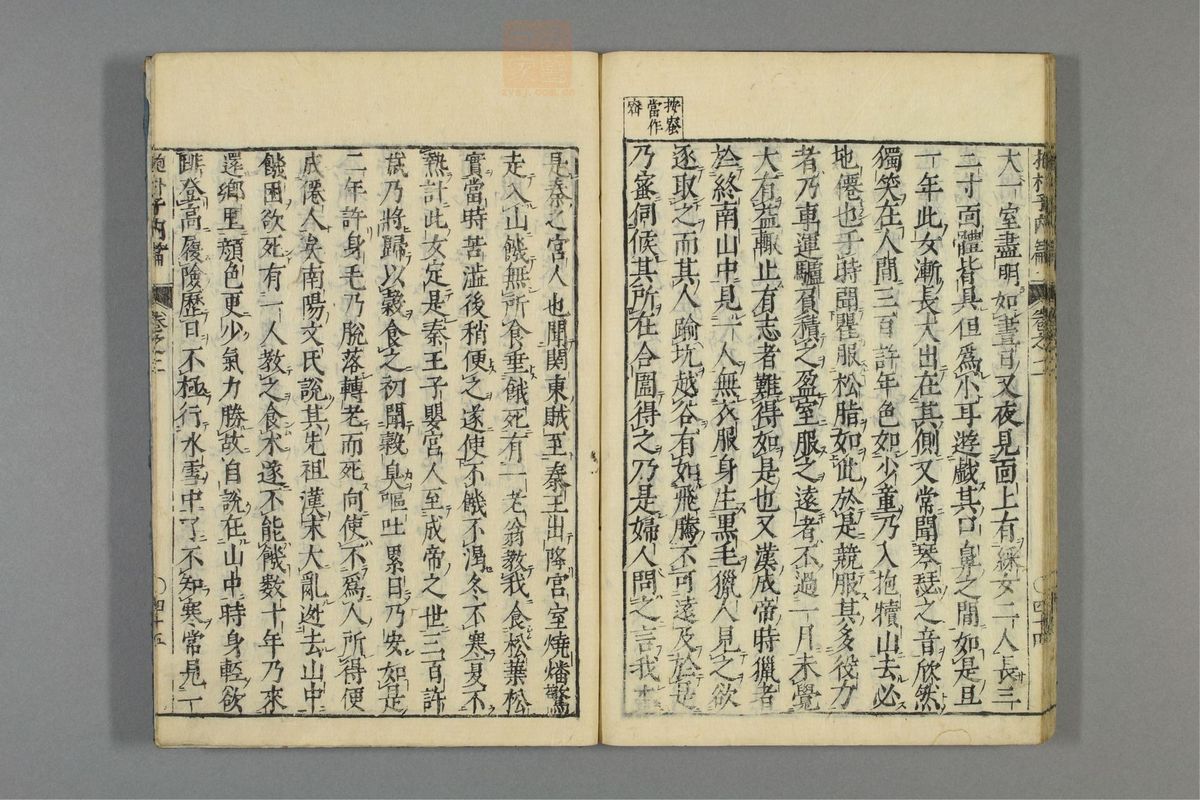 按蜜
當作
密
大一室盡明如晝日又夜見面上有綵女二人長三
二寸面體皆具但爲小耳遊戲其口鼻之間如是且
一年此女漸長大出在其側又常聞琴瑟之音欣然
獨笑在人間三百許年色如少童乃入抱犢山去必
地僊也于時聞瞿服松脂如此於是競服其多役力
者乃車運驢負積之盈室服之遠者不過一月未覺
大有益輒止有志者難得如是也又漢成帝時獵者
於終南山中見一人無衣服身生黒毛獵人見之欲
逐取之而其人踰坑越谷有如飛騰不可逮及於是
乃蜜伺候其所在合圍得之乃是婦人問之言我本
是秦之宮人也聞關東賊至秦王出降宮室燒燔驚
走入山饑無所食垂餓死有一老翁教我食松葉松
實當時苦澁後稍便之遂使不饑不渴冬不寒夏不
熱計此女定是秦王子嬰宮人至成帝之世三百許
歲乃將歸以穀食之初聞穀臭嘔吐累日乃安如是
二年許身毛乃脫落轉老而死向使不爲人所得便
成僊人矣南陽文氏說其先祖漢末大亂逃去山中
饑困欲死有一人教之食朮遂不能饑数十年乃來
還鄉里顔色更少氣力勝故自說在山中時身輕欲
跳登高履險歷日不極行氷雪中了不知寒常見一
抱朴子內篇
卷之二
四十五